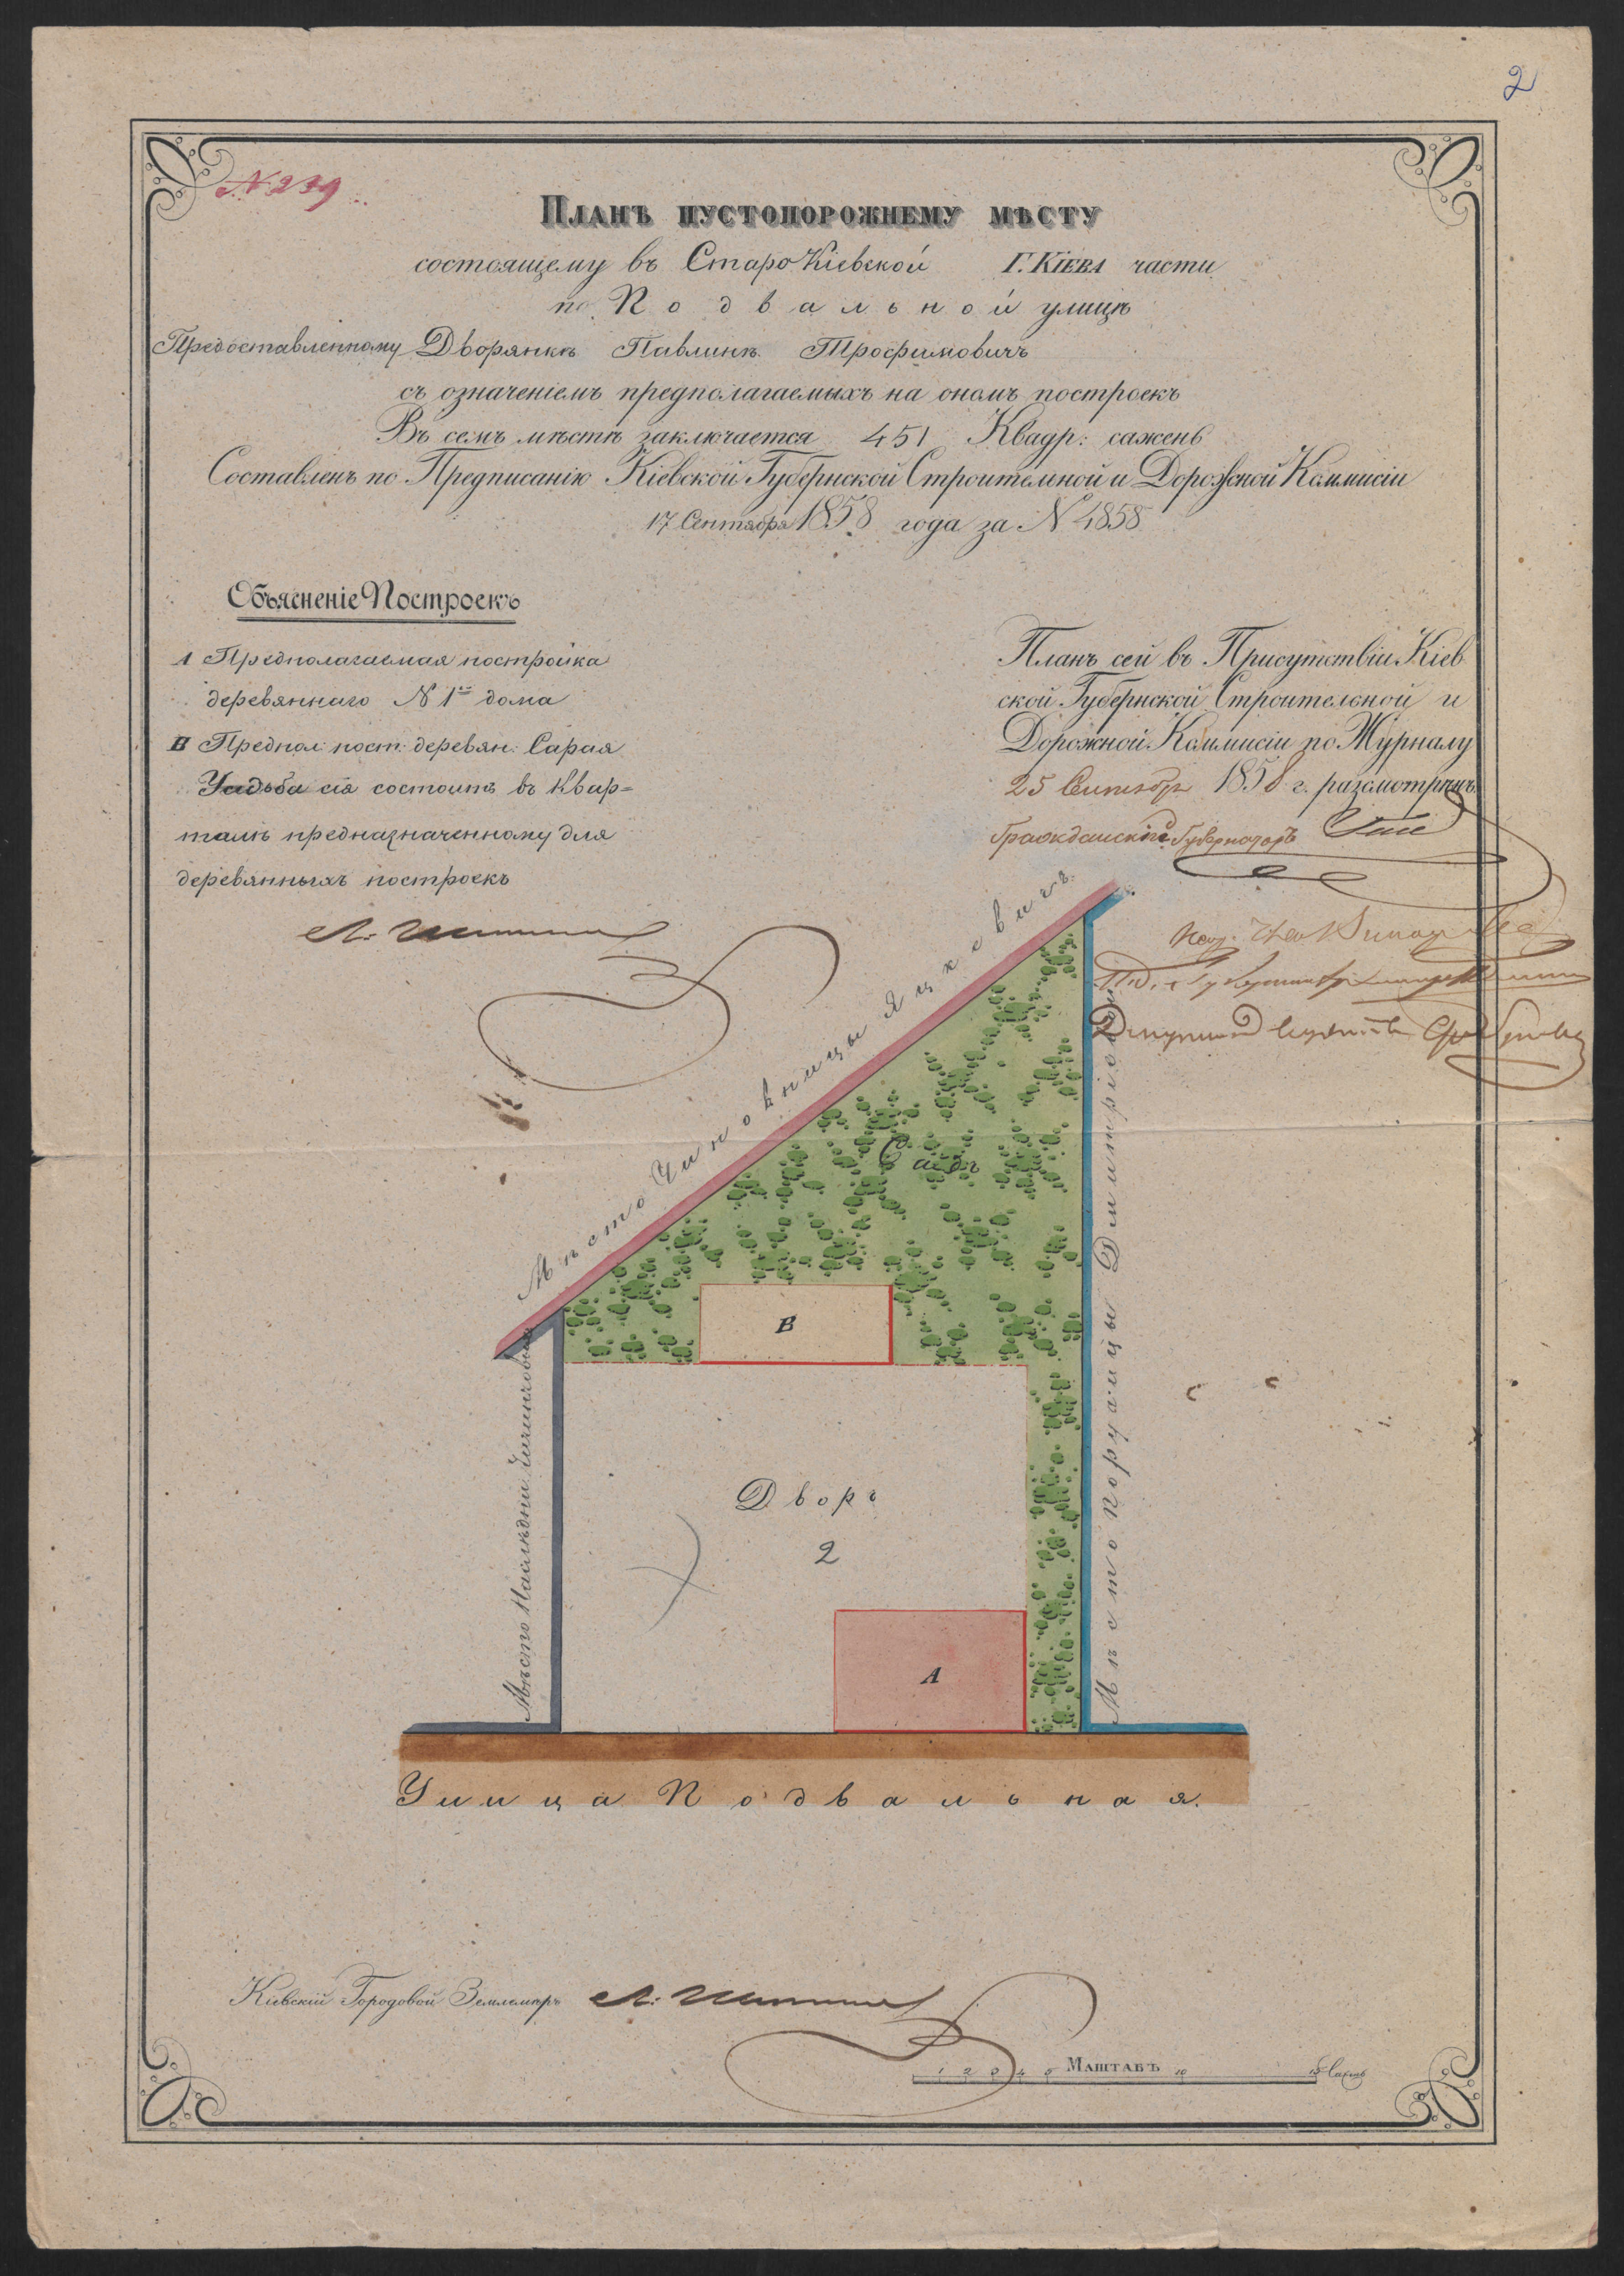 2
№ 239
Планъ пустопорожнему мѣсту
состоящему въ Старокіевской Г. Кіева части
по Подвальной улицѣ
Предоставленному Дворянкѣ Павлинѣ Трофимовичъ
съ означеніемъ предполагаемыхъ на ономъ построекъ
Въ семъ мѣстѣ заключается 451 Квадр: сажень
Составленъ по Предписанію Кіевской Губернской Строительной и Дорожной Коммисіи
17 Сентября 1858 года за № 4858
Объясненіе Построекъ
А Предполагаемая постройка
деревяннаго № 1го дома
В Предпол: пост: деревян: Сарая
Усадьба сія состоитъ въ Квар=
талѣ предназначенному для
деревянныхъ построекъ
Планъ сей въ Присутствіи Кіев
ской Губернской Строительной и
Дорожной Коммисіи по Журналу
25 Сентябр 1858 г. разсмотрѣнъ
Гражданскій Губернаторъ
Мѣсто Чиновницы Яцкевичъ
Садъ
В
Мѣсто Порутчицы
Дворъ
2
А
Улица Подвальная.
Кіевскій Городовой Землемѣръ
1 2 3 4 5 Маштабъ 10 15 Сажень